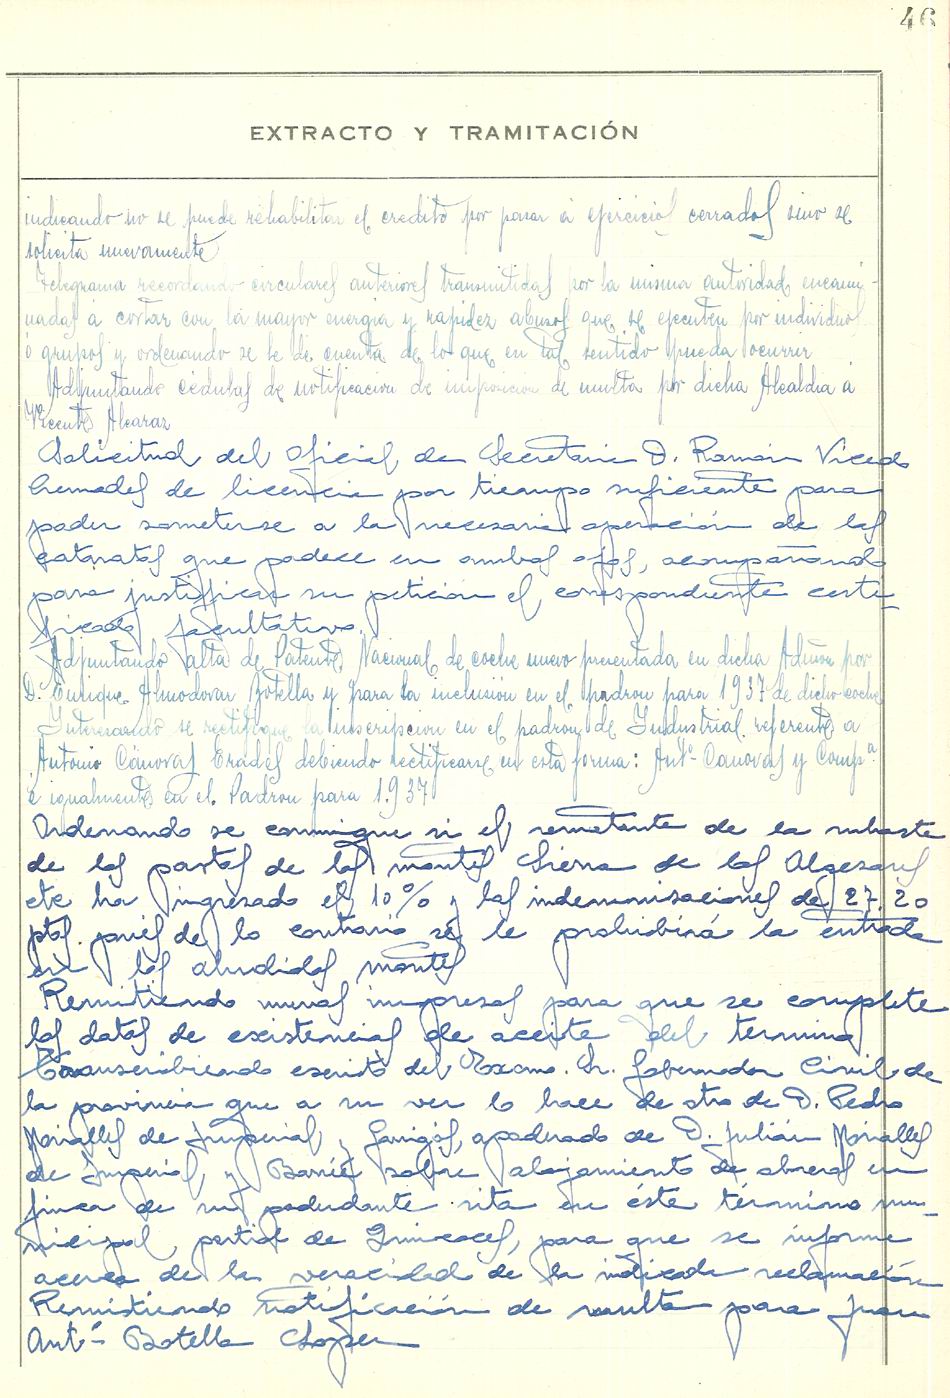 46
EXTRACTO Y TRAMITACIÓN
indicando no se puede rehabilitar el credito por pasar a ejercicios cerrados sino se
solicita nuevamente
Telegrama recordando circulares anteriores transmitidas por la misma autoridad encami-
nadas a cortar con la mayor energia y rapidez abusos que se ejecuten por individuos
o grupos y ordenando se le de cuenta de lo que en tal sentido pueda ocurrir
Adjuntando cédulas de notificacion de imposicion de multa por dicha Alcaldia a
Vicente Alcaraz
Solicitud del Oficial de Secretaria D. Ramón Vicedo
Cremades de licencia por tiempo suficiente para
poder someterse a la necesaria operación de las
cataratas que padece en ambos ojos, acompañando
para justificar su petición el correspondiente certi-
ficado facultativo.
Adjuntando alta de Patente Nacional de coche nuevo presentada en dicha Admon por
D. Enrique Almodovar Botella y para la inclusión en el padron para 1937 de dicho coche
Interesando se rectifique la inscripcion en el padron de Industrial referente a
Antonio Cánovas Erades debiendo rectificarse en esta forma: Antº Canovas y Compª
e igualmente en el Padron para 1.937
Ordenando se comunique si el rematante de la subasta
de los pastos de los montes Sierra de los Algezares
etc ha ingresado el 10% y las indemnisaciones de 27,20
ptas. pues de lo contrario se le prohibirá la entrada
en los aludidos montes
Remitiendo impresos para que se complete
los datos de existencias de aceite del termino
Transcribiendo escrito del Excmo. Sr. Gobernador Civil de
la provincia que a su ver lo hace de otro de D. Pedro
de Imperial y Garigós, apoderado de D. Julián
de Imperial y sobre alojamiento de obreros en
finca de su poderdante sita en éste término mu-
nicipal, partida de para que se informe
acerca de la veracidad de la indicada reclamación
Remitiendo notificación de multa para Juan
Antº Botella Lopez